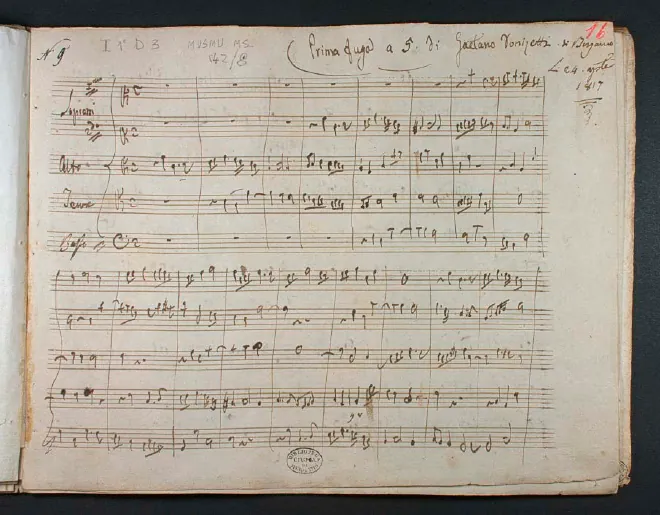 16
N 9 I 1ª D 3 MUSMU MS. Prima fuga a 5. di Gaetano Donizetti di Bergamo
142/8 Li 24. 1817
Soprani
2º
Alto
Tenore
Basso